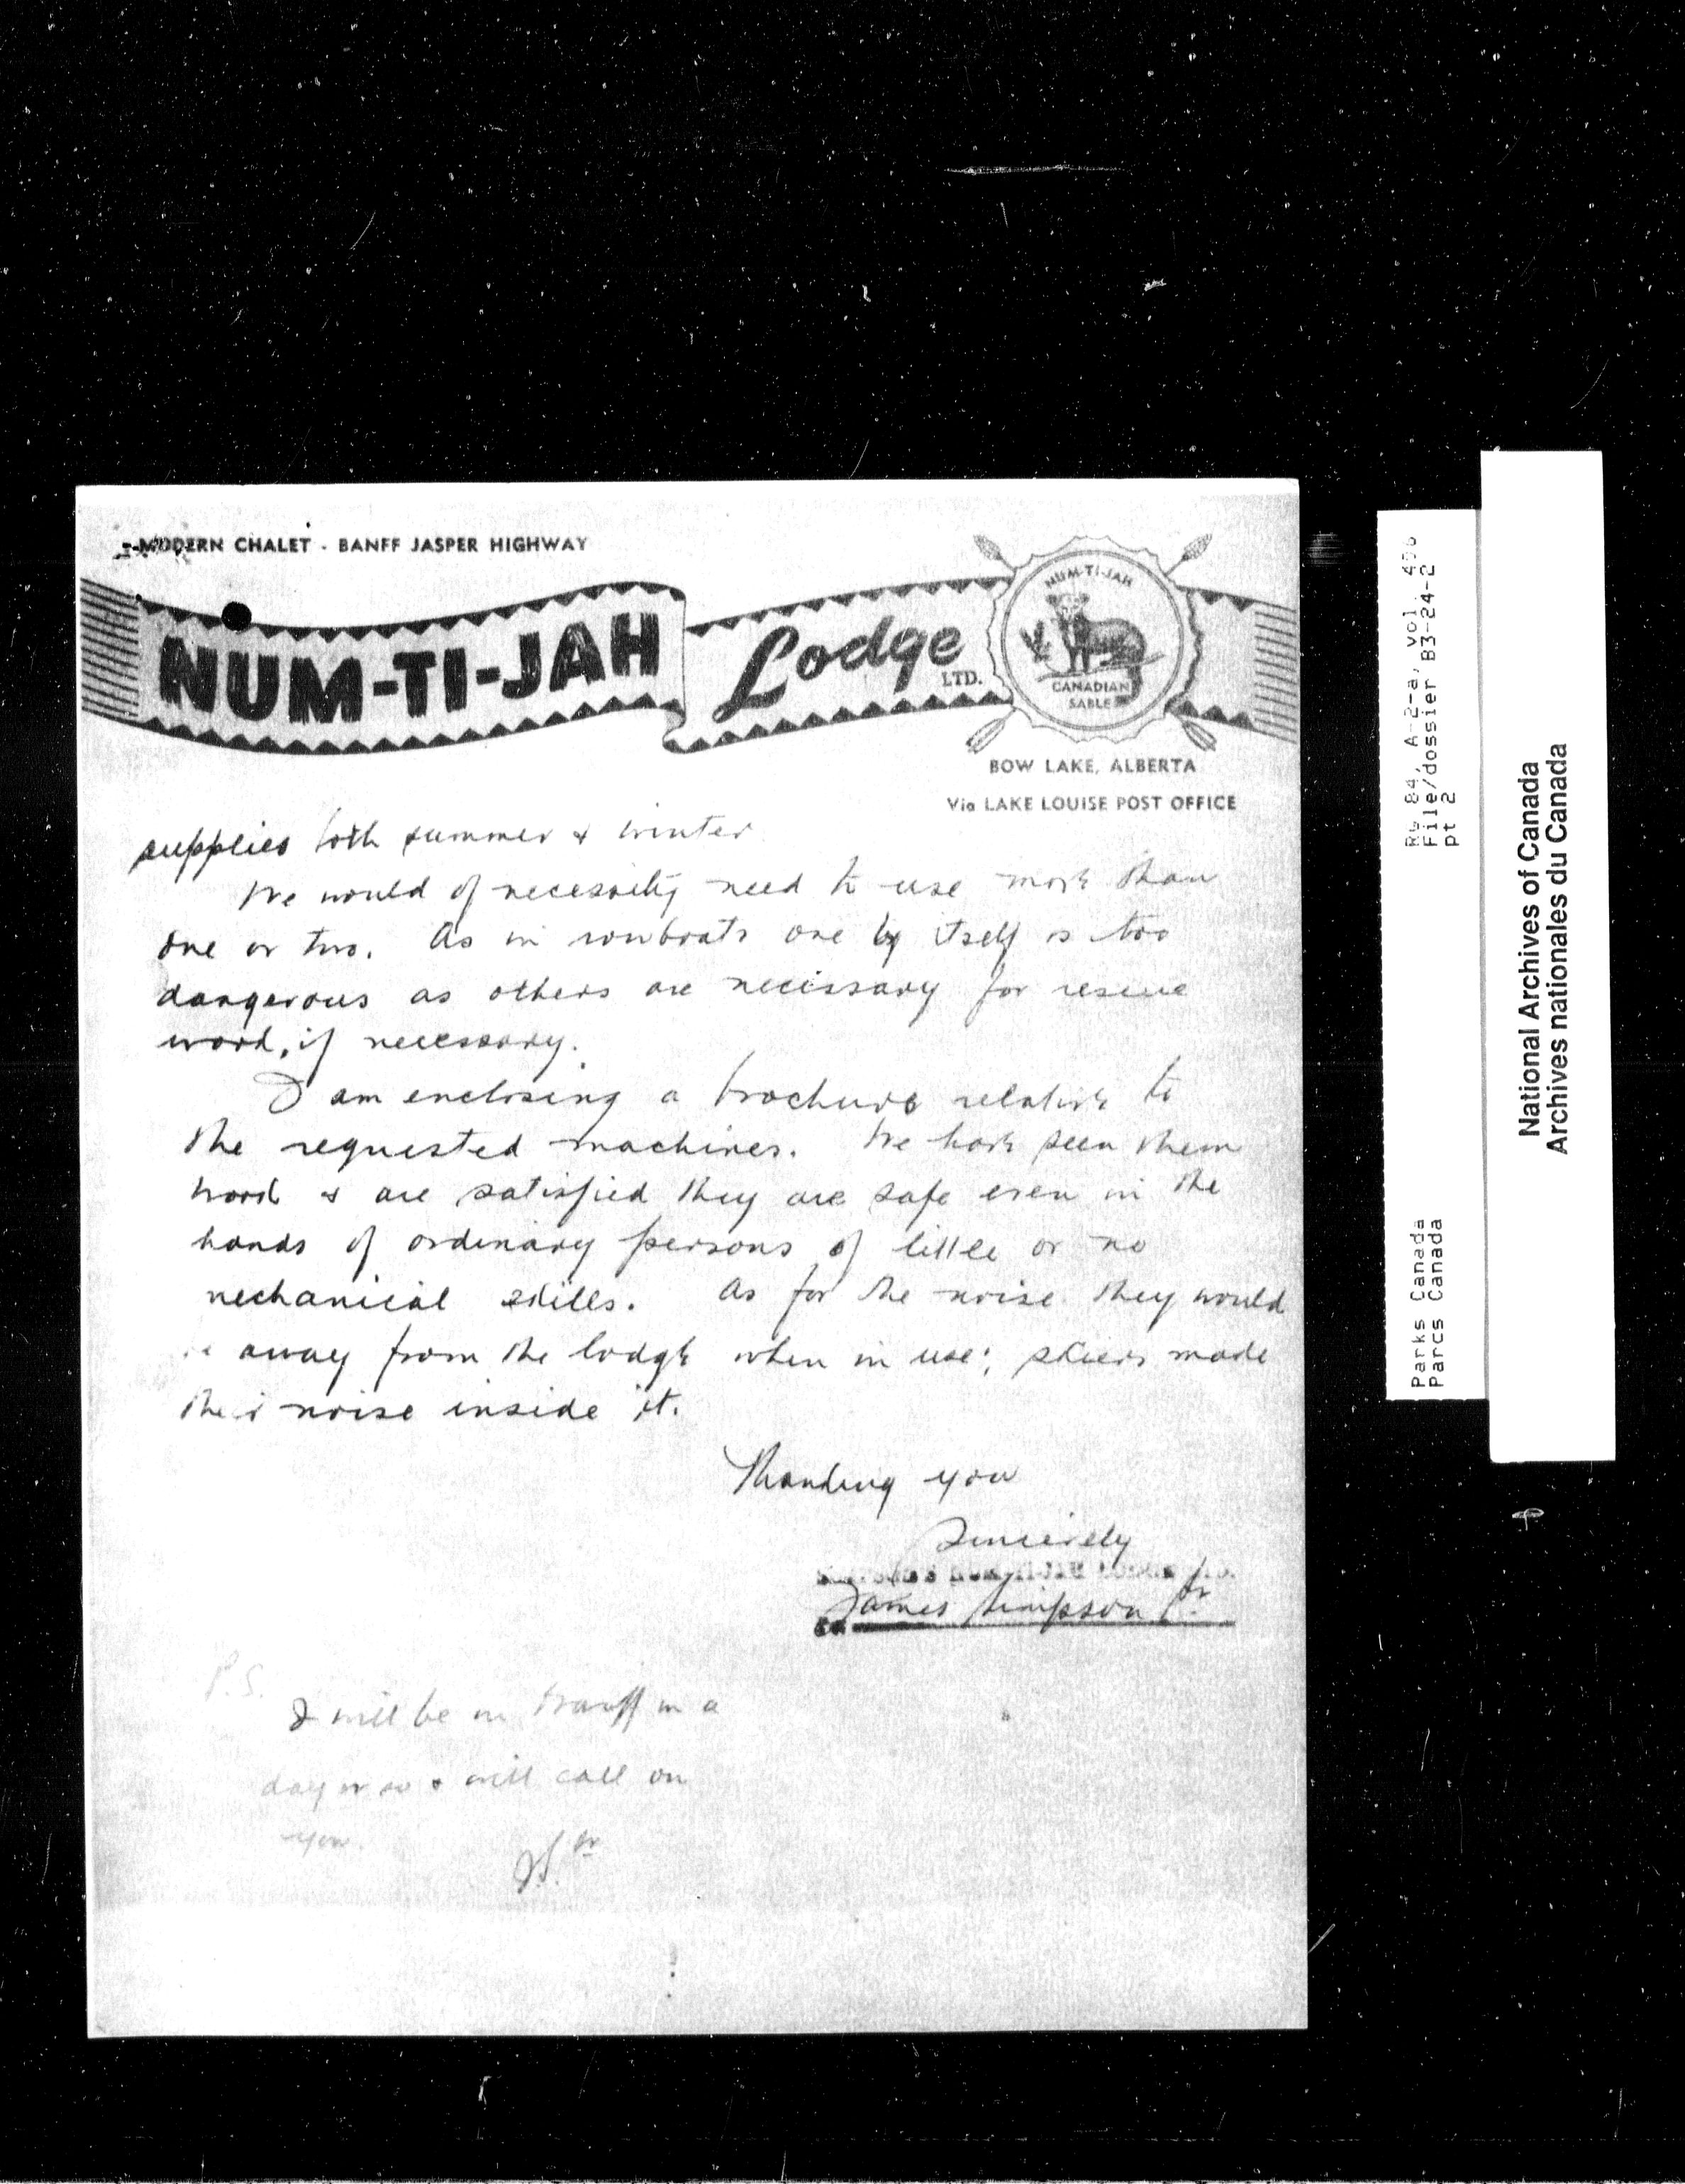 MODERN CHALET - BANFF JASPER HIGHWAY
NUM-TI-JAH Lodge LTD.
NUM-TI-JAH
CANADIAN
SABLE
BOW LAKE, ALBERTA
Via LAKE LOUISE POST OFFICE
supplies both summer & winter
We would of necessity need to use more than
one or two. As in rowboats one by itself is too
dangerous as others are necessary for rescue
work, if necessary.
I am enclosing a brochure relative to
the requested machines. We have seen them
work & are satisfied they are safe even in the
hands of ordinary persons of little or no
mechanical skills. As for the noise they would
be away from the lodge when in use; skiers made
their noise inside it.
Thanking you
Sincerely
James Simpson Jr
P.S.
I will be in Banff in a
day or so & will call on
you.
J.S. Jr
RG 84, A-2-a, vol.
File/dossier B3-24-2
pt 2
Parks Canada
Parcs Canada
National Archives of Canada
Archives nationales du Canada